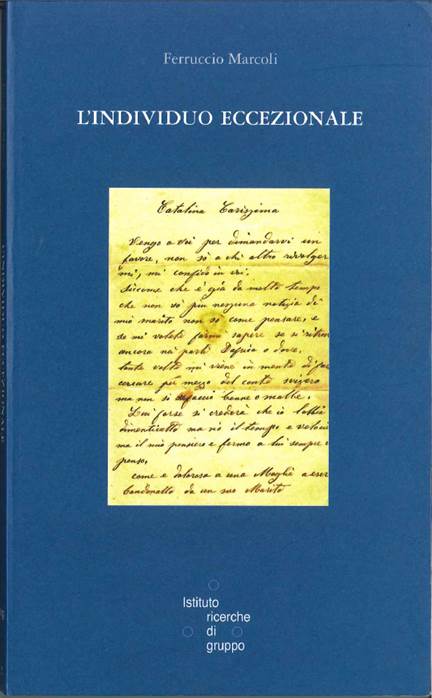 Ferruccio Marcoli
L'INDIVIDUO ECCEZIONALE
Catalina Carissima
Vengo a voi per dimandarvi un
favore, non sò a chi altro rivolger
mi, mi confido in
Siccome che è già da molto tempo
che non vò più nessuna notizia di
mio marito non sò come pensare, e
se mi volete farmi sapere se si ritrova
ancora
tante volte mi viene in mente di far
cercare per mezzo del
ma non sì faccii bene o malle.
Lui forse si crederà che io labbia
dimenticatto ma nò il tempo è veloce
ma il mio pensiero è fermo a lui sempre
penso,
come è dolorosa a una Moglie a eser
bandonatto da un suo Marito
Istituto
ricerche
di
gruppo
L'INDIVIDUO ECCEZIONALE